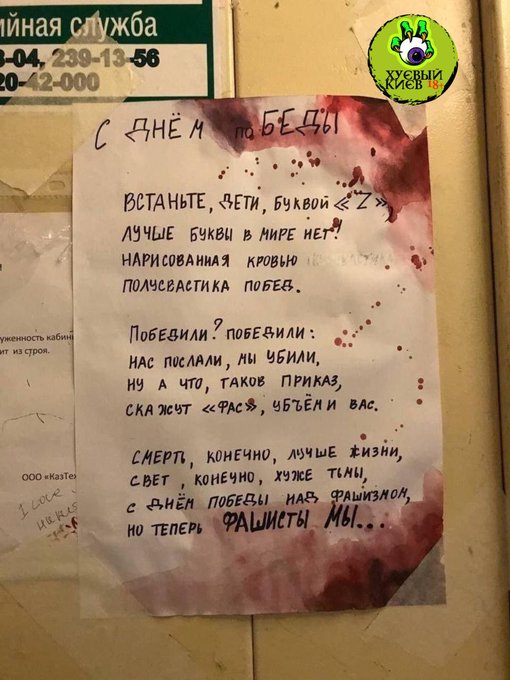 ийная служба
3-04, 239-13-56
20-42-000
ХУЄВЫЙ
КИЄВ 18+
С ДНЁМ поБЕДЫ
ВСТАНЬТЕ, ДЕТИ, БУКВОЙ «Z»,
ЛУЧШЕ БУКВЫ В МИРЕ НЕТ!
НАРИСОВАННАЯ КРОВЬЮ
ПОЛУСВАСТИКА ПОБЕД.
ПОБЕДИЛИ? ПОБЕДИЛИ:
НАС ПОСЛАЛИ, МЫ УБИЛИ,
НУ А ЧТО, ТАКОВ ПРИКАЗ,
СКАЖУТ «ФАС», УБЪЁМ И ВАС.
СМЕРТЬ, КОНЕЧНО, ЛУЧШЕ ЖИЗНИ,
СВЕТ, КОНЕЧНО, ХУЖЕ ТЬМЫ,
С ДНЁМ ПОБЕДЫ НАД ФАШИЗМОМ,
НО ТЕПЕРЬ ФАШИСТЫ МЫ...
уженность кабин
ит из строя.
ООО «КазТех
I love